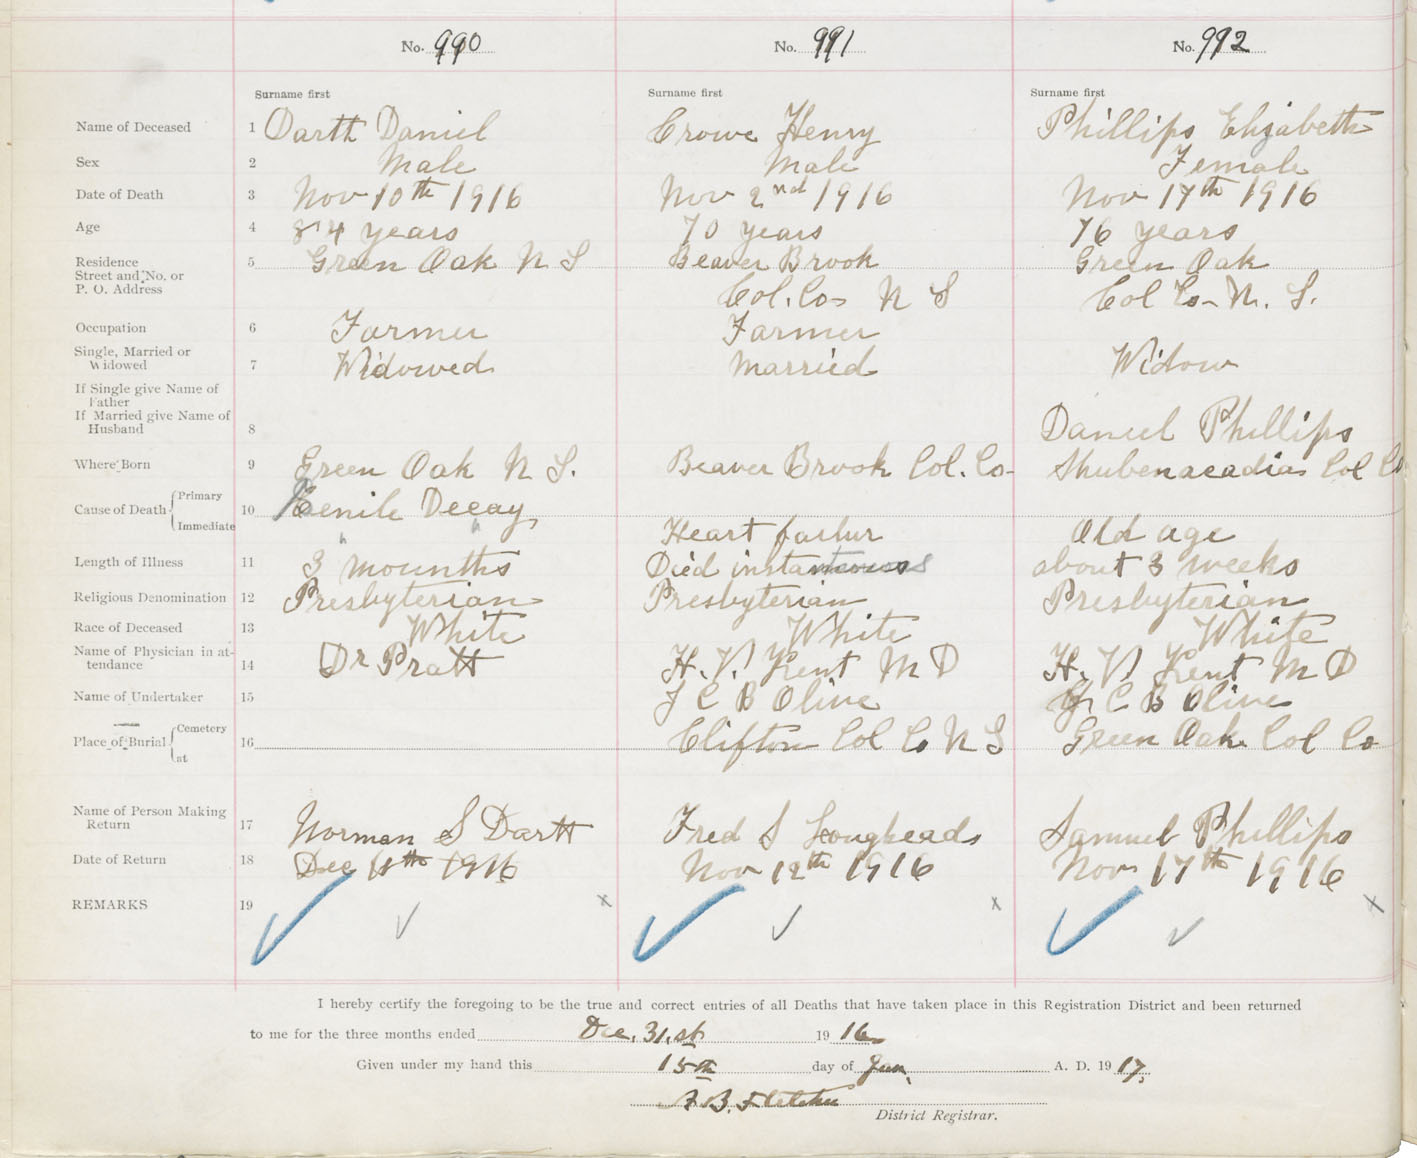 No. 990 No. 991 No. 992
Surname first Surname first Surname first
Name of Deceased 1 Dartt Daniel Crowe Henry Phillips Elizabeth
Sex 2 Male Male Female
Date of Death 3 Nov 10th 1916 Nov 2nd 1916 Nov 17th 1916
Age 4 84 years 70 years 76 years
Residence 5 Green Oak N S Beaver Brook Green Oak
Street and No. or
P. O. Address Col. Co N S Col Co N. S.
Occupation 6 Farmer Farmer
Single, Married or
Widowed 7 Widowed Married Widow
If Single give Name of
Father
If Married give Name of
Husband 8 Daniel Phillips
Where Born 9 Green Oak N S. Beaver Brook Col. Co Shubenacadia Col Co
Cause of Death Primary 10 Senile Decay
Immediate Heart failur Old age
Length of Illness 11 3 mounths Died instanteous about 3 weeks
Religious Denomination 12 Presbyterian Presbyterian Presbyterian
Race of Deceased 13 White White White
Name of Physician in at-
tendance 14 Dr Pratt H. V. Kent M D H. V. Kent M D
Name of Undertaker 15 J C B Olive J C B Olive
Place of Burial Cemetery 16 Clifton Col Co N S Green Oak Col Co
at
Name of Person Making
Return 17 Norman S Dartt Fred S Longheads Samuel Phillips
Date of Return 18 Dec 11th 1916 Nov 12th 1916 Nov 17th 1916
REMARKS 19
I hereby certify the foregoing to be the true and correct entries of all Deaths that have taken place in this Registration District and been returned
to me for the three months ended Dec. 31.st 19 16
Given under my hand this 15th day of Jan. A. D. 19 17,
B. Fletcher
District Registrar.